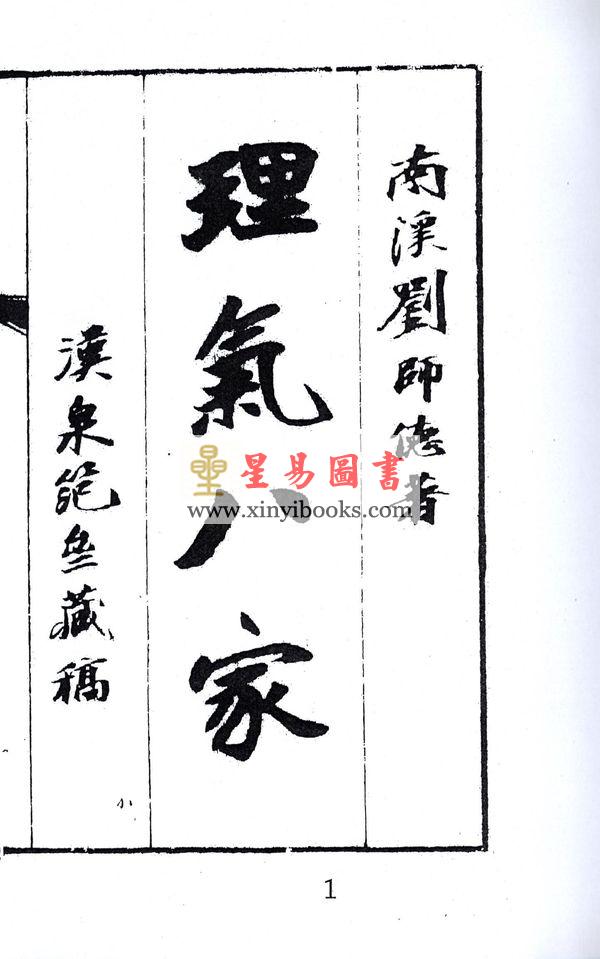 南溪劉師德著
理氣八家
漢泉藏稿
星易圖書
www.xinyibooks.com
1